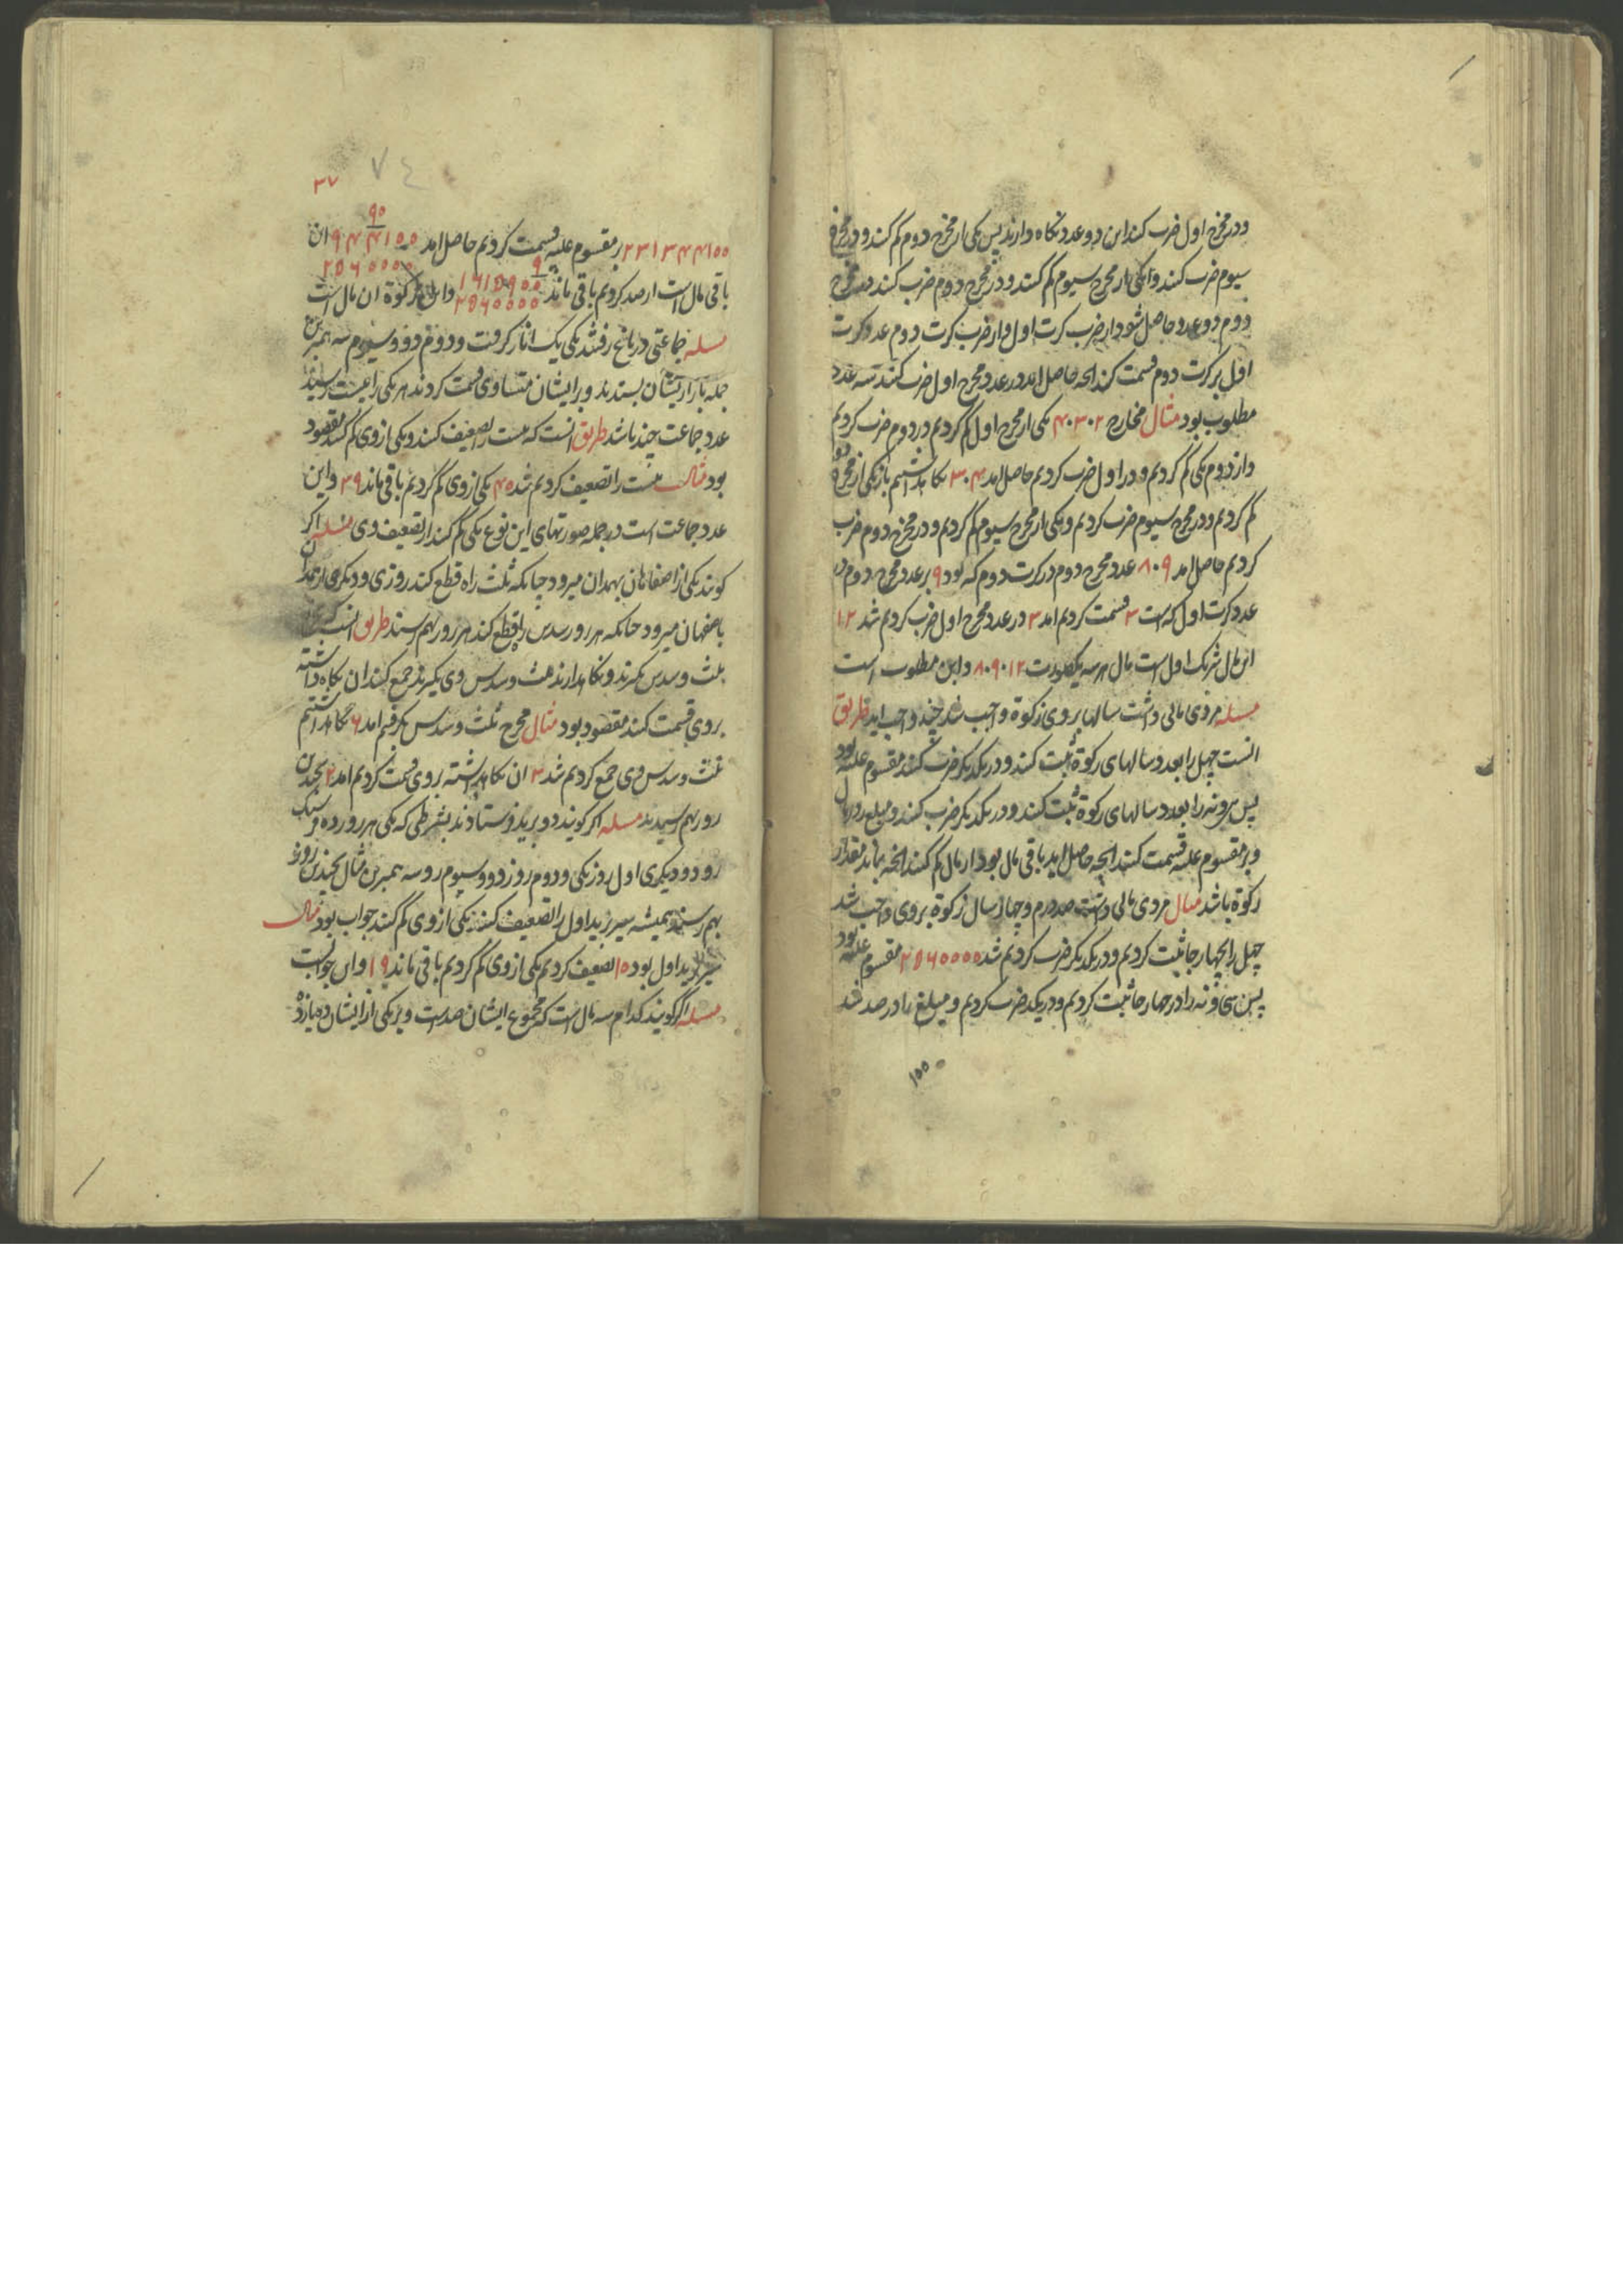 ودر مخرج اول ضرب کنند این دو عدد نکاه دارند پس یکی از مخرج دوم کم کنند و در مخرج
سیوم ضرب کنند و یکی از مخرج سیوم کم کنند و در مخرج دوم ضرب کنند
دوم دو عدد حاصل شود از ضرب کرت اول و از ضرب کرت دوم عدد کرت
اول بر کرت دوم قسمت کنند انچه حاصل اید در عدد مخرج اول ضرب کنند سه عدد
مطلوب بود مثال مخارج ۲۰۳۰۴ یکی از مخرج اول کم کردیم در دوم ضرب کردیم
و از دوم یکی کم کردیم و در اول ضرب کردیم حاصل امد ۳۰۴ نکاه داشتیم باز یکی از مخرج دوم
کم کردیم و در مخرج سیوم ضرب کردیم و یکی از مخرج سیوم کم کردیم و در مخرج دوم ضرب
کردیم حاصل امد ۸۰۹ عدد مخرج دوم در کرت دوم که بود ۹ بر عدد مخرج دوم در
عدد کرت اول که است ۳ قسمت کردیم امد ۳ در عدد مخرج اول ضرب کردیم شد ۱۲
این مال شریک اول است مال هر سه ۸۰۹۰۱۲ و این مطلوب است
مسله مردی مالی داشت سالها بروی زکوة واجب شد چند واجب اید طریق
انست چهل را بعدد سالهای زکوة ثبت کنند و در یکدیکر ضرب کنند مقسوم علیه بود
پس سی و نه را بعدد سالهای زکوة ثبت کنند و در یکدیکر ضرب کنند و مبلغ را در مال
و بر مقسوم علیه قسمت کنند انچه حاصل اید باقی مال بود از مال کم کنند انچه بماند مقدار
زکوة باشد مثال مردی مالی داشت صد درم و چهار سال زکوة بروی واجب شد
چهل را بچهار جا ثبت کردیم و در یکدیکر ضرب کردیم شد ۲۵۶۰۰۰۰ مقسوم علیه بود
پس سی و نه را در چهار جا ثبت کردیم و در یکدیکر ضرب کردیم و مبلغ را در صد شد
۱۰۰
۷۴
۳۷
۲۳۱۳۴۴۱۰۰ بر مقسوم علیه قسمت کردیم حاصل امد ۹۰ ۹۴۴۱۰۰ ۲۵۶۰۰۰۰ ان
باقی مال است از صد کردیم باقی ماند ۹ ۱۶۱۵۹۰۰ ۲۵۶۰۰۰۰ و این زکوة ان مال است
مسله جماعتی در باغ رفتند یکی یک انار کرفت و دوم دو و سیوم سه همبرین
جمله بازایشان بستدند و بر ایشان متساوی قسمت کردند هر یکی را بیست رسید
عدد جماعت چند باشد طریق انست که بیست را تضعیف کنند و یکی از وی کم کنند مقصود
بود مثال بیست را تضعیف کردیم شد ۴۰ یکی از وی کم کردیم باقی ماند ۳۹ و این
عدد جماعت است در جمله صورتهای این نوع یکی کم کنند از تضعیف وی مسله اکر
کویند یکی از اصفاهان بهمدان میرود چنانکه ثلث راه قطع کند روزی و دیکری از همدان
باصفهان میرود چنانکه هر روز سدس راه قطع کند هر روز بهم رسند طریق انست
ثلث و سدس بکیرند و نکاه دارند ثلث و سدس وی بکیرند جمع کنند ان نکاه داشته
بروی قسمت کنند مقصود بود مثال مخرج ثلث و سدس بکرفتیم امد ۶ نکاه داشتیم
ثلث و سدس وی جمع کردیم شد ۳ ان نکاه داشته بروی قسمت کردیم امد ۲ بچندین
روز بهم رسیدند مسله اکر کویند دو برید فرستادند بشرطی که یکی هر روز ده فرسنک
رود و دیکری اول روز یکی و دوم روز دو و سیوم روز سه همبرین مثال بچندین روز
بهم رسند همیشه سیر برید اول را تضعیف کنند یکی از وی کم کنند جواب بود مثال
سیر برید اول بود ۱۰ تضعیف کردیم یکی از وی کم کردیم باقی ماند ۱۹ و این جوابست
مسله اکر کویند کدام سه مال است که مجموع ایشان صد است و بر یکی از ایشان ده یازده